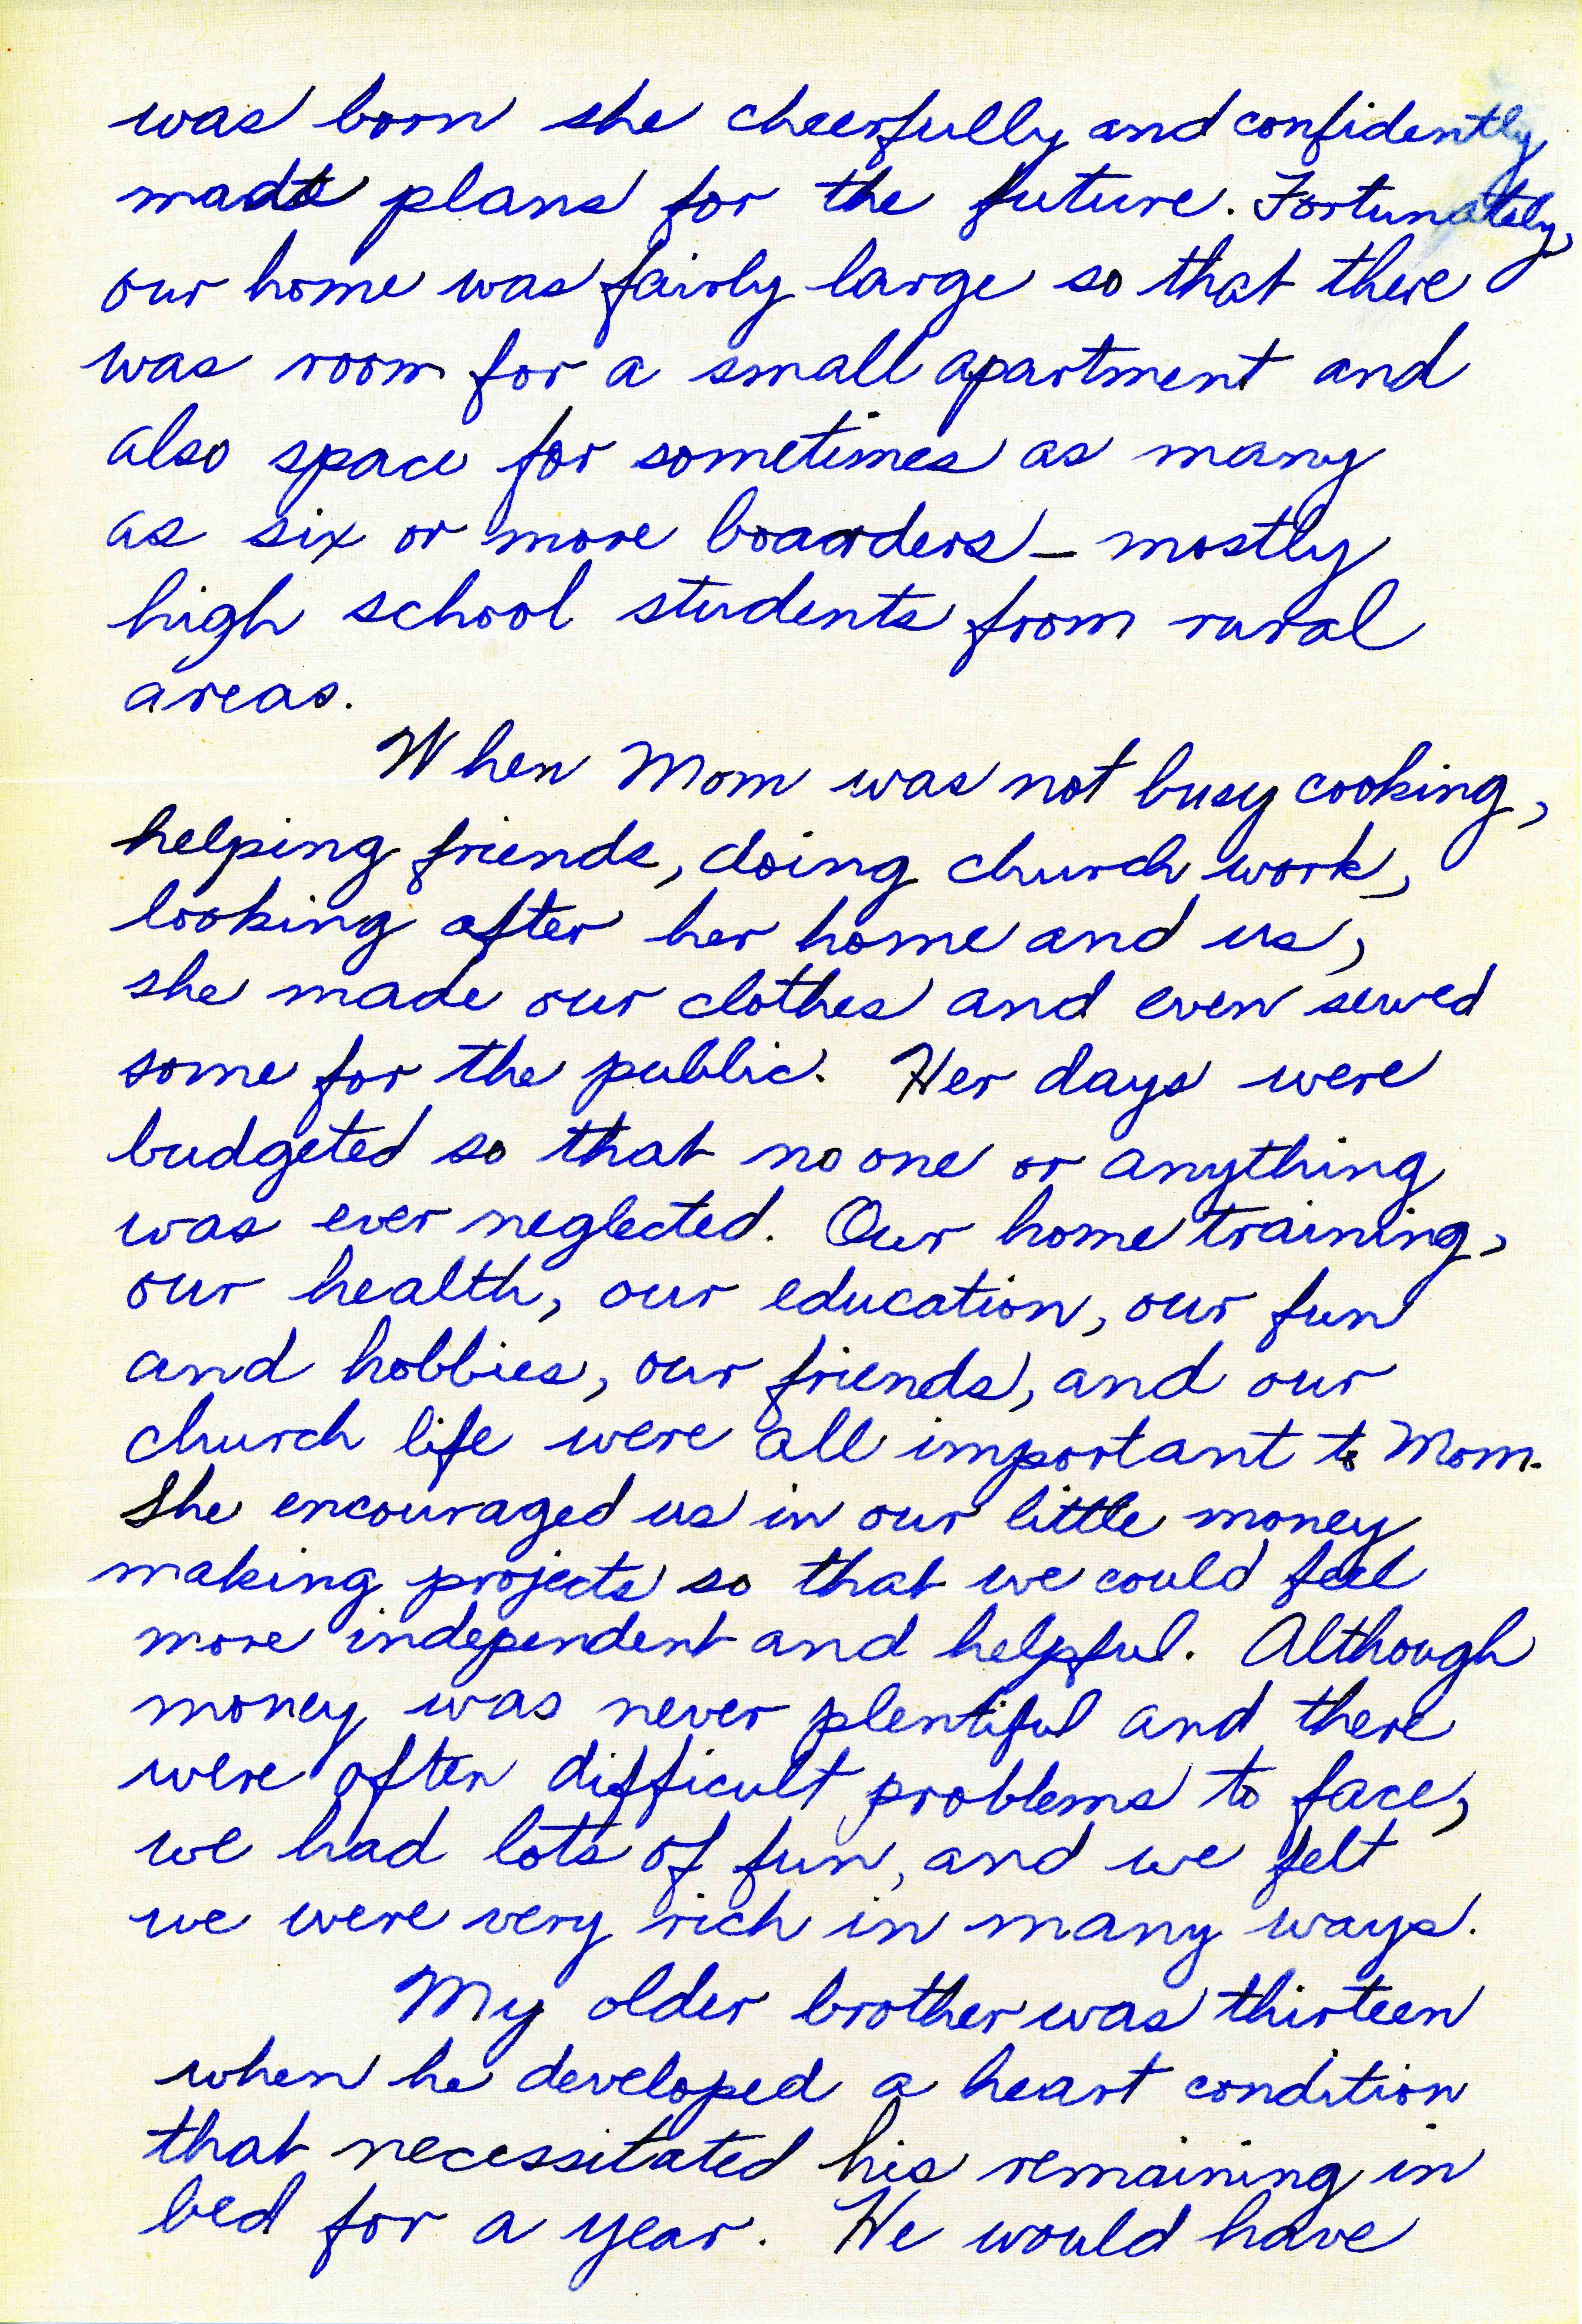 was born she cheerfully and confidently
made plans for the future. Fortunately,
our home was fairly large so that there
was room for a small apartment and
also space for sometimes as many
as six or more boarders – mostly
high school students from rural
areas.
When Mom was not busy cooking,
helping friends, doing church work,
looking after her home and us,
she made our clothes and even sewed
some for the public. Her days were
budgeted so that no one or anything
was ever neglected. Our home training,
our health, our education, our fun
and hobbies, our friends, and our
church life were all important to Mom.
She encouraged us in our little money
making projects so that we could feel
more independent and helpful. Although
money was never plentiful and there
were often difficult problems to face,
we had lots of fun, and we felt
we were very rich in many ways.
My older brother was thirteen
when he developed a heart condition
that necessitated his remaining in
bed for a year. He would have